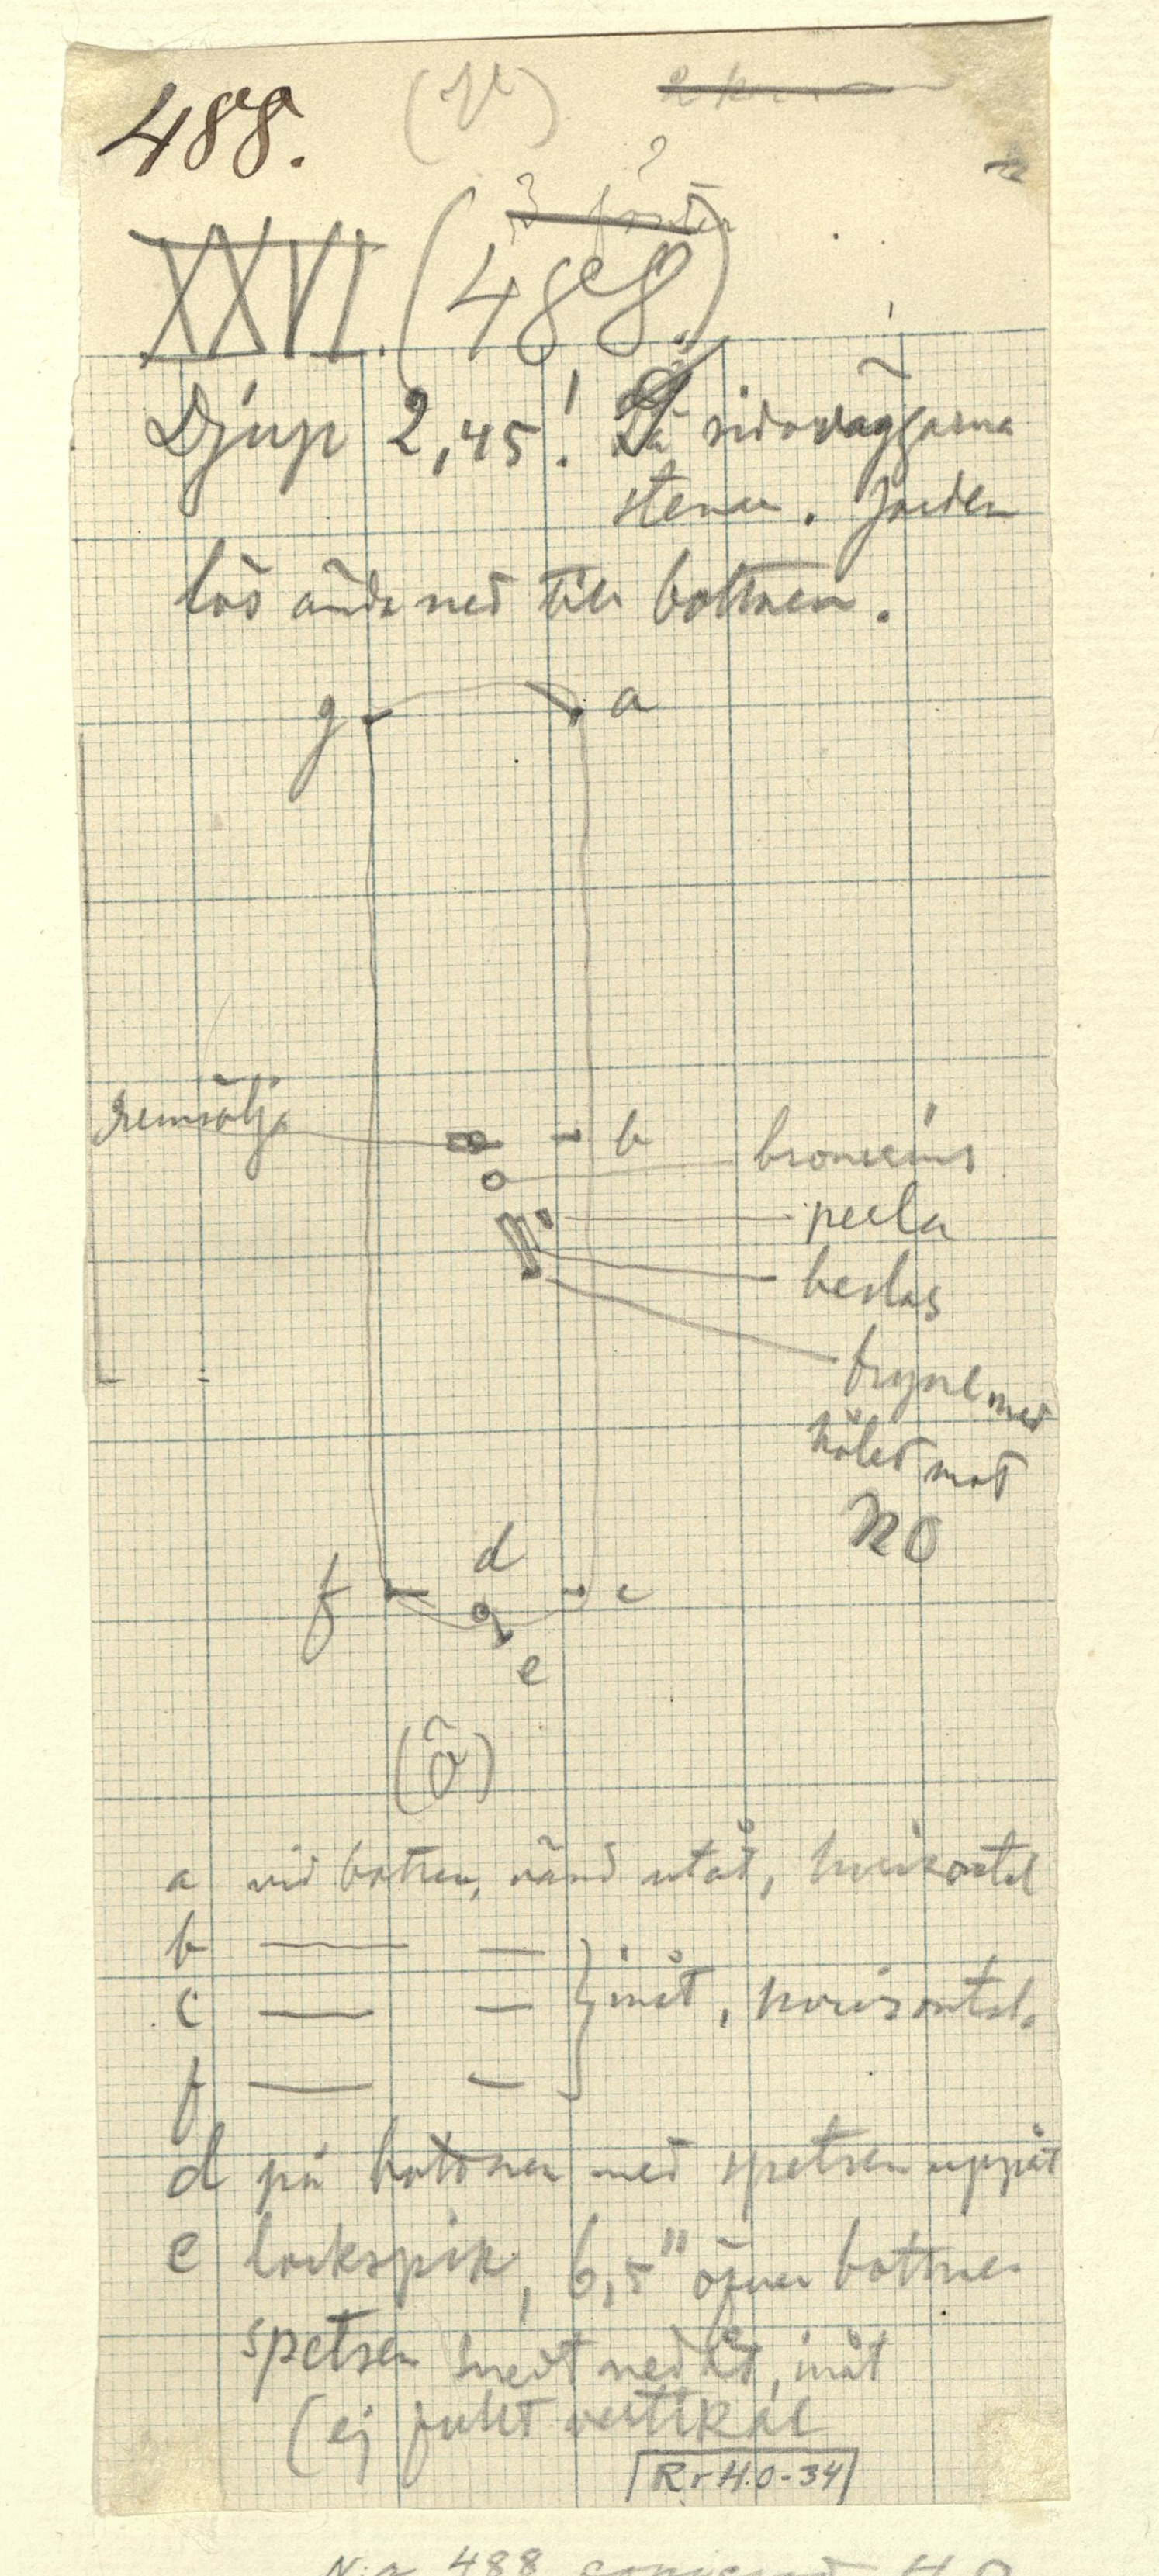 488.
(V)
?
3 fönster
XXVI. (488)
Djup 2,45! På sidoväggarna
stenar. Jorden
lös ända ned till bottnen.
g
a
remsölja
b
bronsring
pärla
beslag
bryne med
hålet mot
NO
d
f
c
e
(Ö)
a vid botten, vänd utåt, horisontel
b — —
c — — } inåt, horisontel.
f — —
d på bottnen med spetsen uppåt
e lockspik, 6,5" öfver bottnen
spetsen snedt nedåt, inåt
(ej fullt vertikal
R.r H.O-34
488